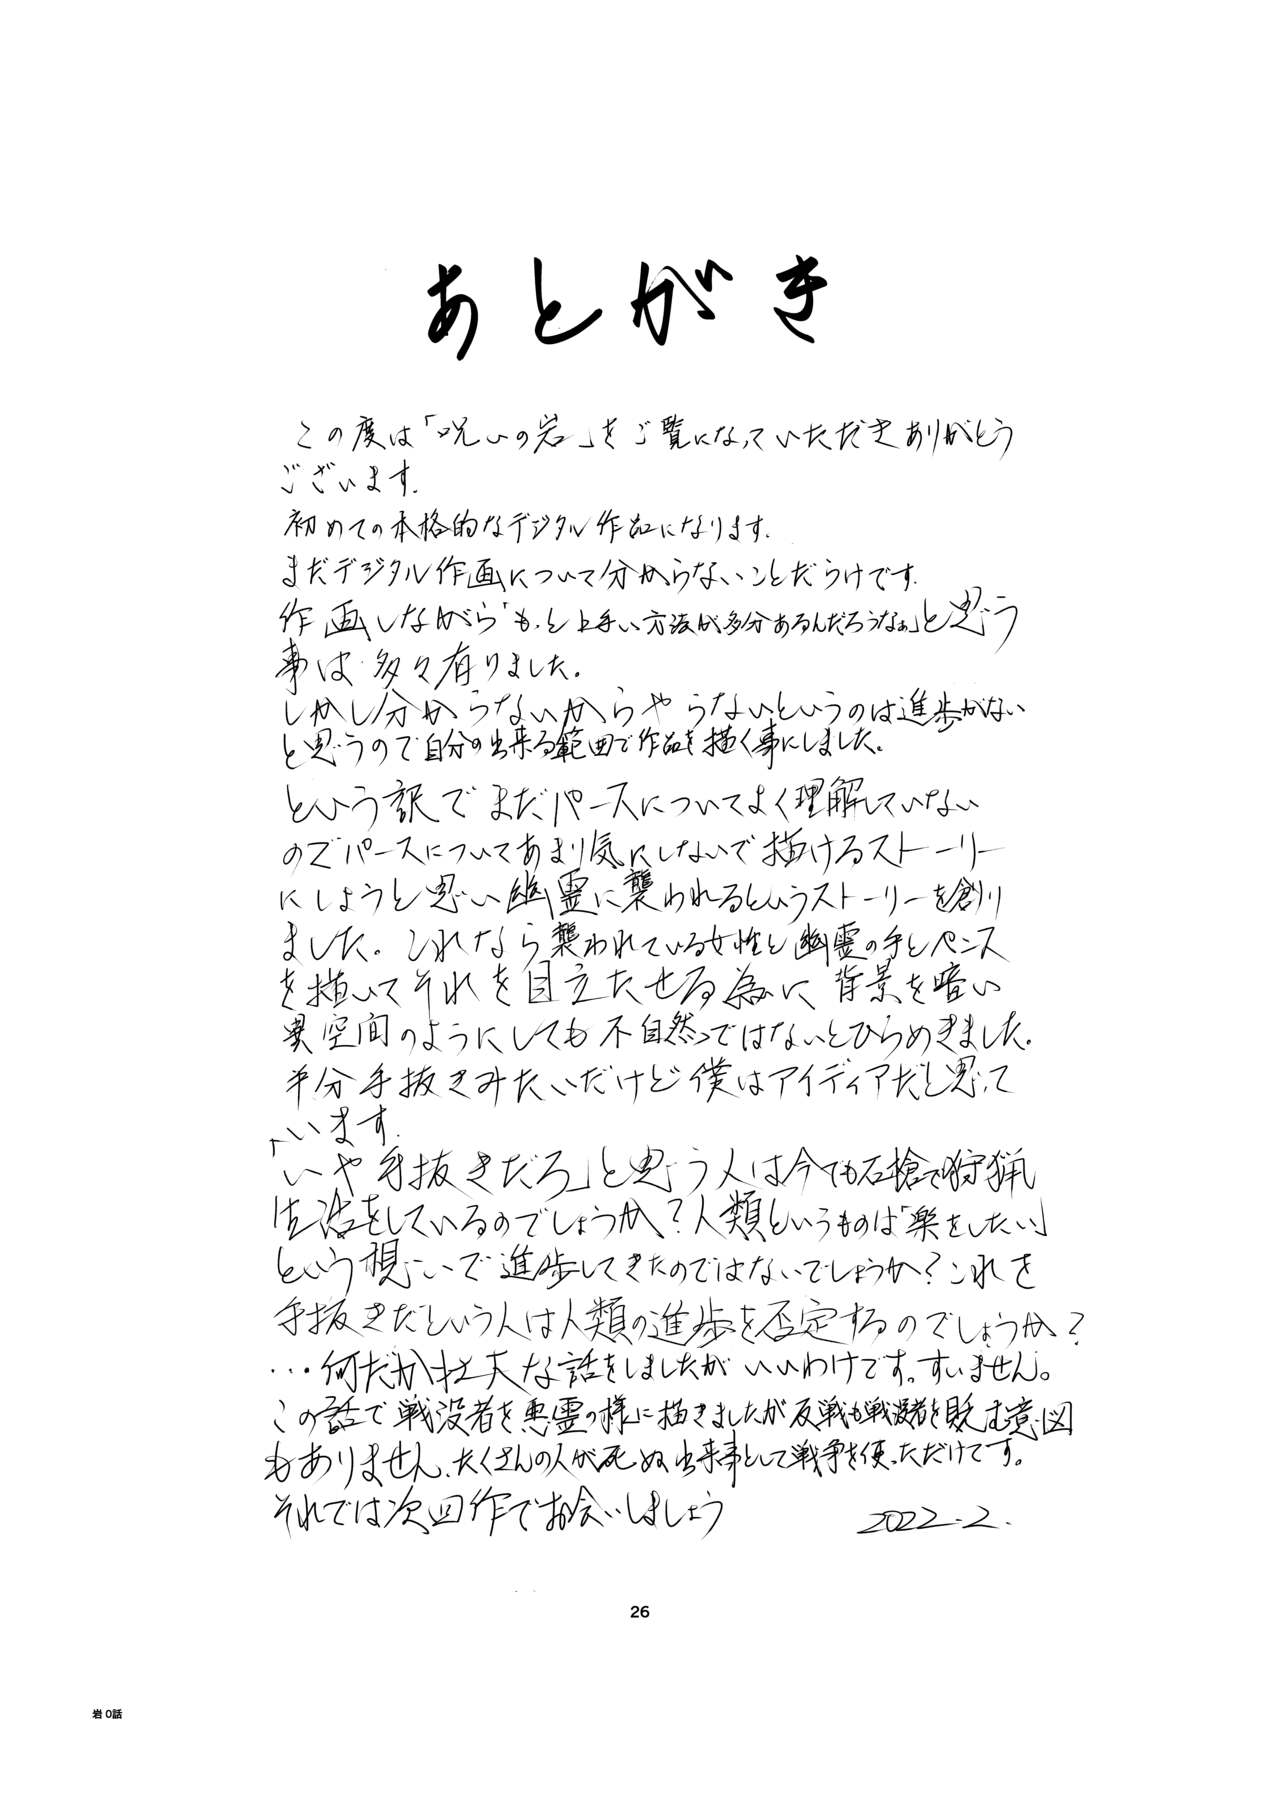 あとがき
この度は「呪いの岩」をご覧になっていただきありがとう
ございます.
初めての本格的なデジタル作品になります.
まだデジタル作画について分からないことだらけです.
作画しながら「もっと上手い方法が多分あるんだろうなぁ」と思う
事は多々有りました。
しかし分からないからやらないというのは進歩がない
と思うので自分の出来る範囲で作品を描く事にしました。
という訳でまだパースについてよく理解していない
のでパースについてあまり気にしないで描けるストーリー
にしようと思い幽霊に襲われるというストーリーを創り
ました。これなら襲われている女性と幽霊の手とペニス
を描いてそれを目立たせる為に背景を暗い
異空間のようにしても不自然ではないとひらめきました.
半分手抜きみたいだけど僕はアイディアだと思って
います.
「いや手抜きだろ」と思う人は今でも石槍で狩猟
生活をしているのでしょうか?人類というものは「楽をしたい」
という想いで進歩してきたのではないでしょうか?これを
手抜きだという人は人類の進歩を否定するのでしょうか?
…何だか壮大な話をしましたがいいわけです。すいません。
この話で戦没者を悪霊の様に描きましたが反戦も戦没者を貶む意図
もありません、たくさんの人が死ぬ出来事として戦争を使っただけです。
それでは次回作でお会いしましょう
2022.2.
26
岩 0話